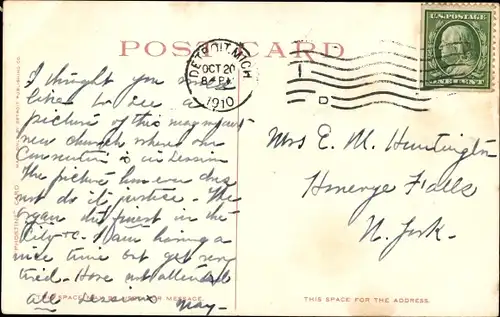 POST CARD
DETROIT, MICH
OCT 20
8 PM
1910
D
U.S. POSTAGE
ONE CENT
PHOSTINT CARD
DETROIT PUBLISHING CO.
I thought you
like to see a
picture of this magnificent
new church where our
Convention is in session
The picture however does
not do it justice. The
organ the finest in the
City &c. I am having a
nice time but get very
tired. Have not attended
all sessions May-
Mrs E. M. Huntington
Honeoye Falls
N. York.
THIS SPACE FOR MESSAGE.
THIS SPACE FOR THE ADDRESS.